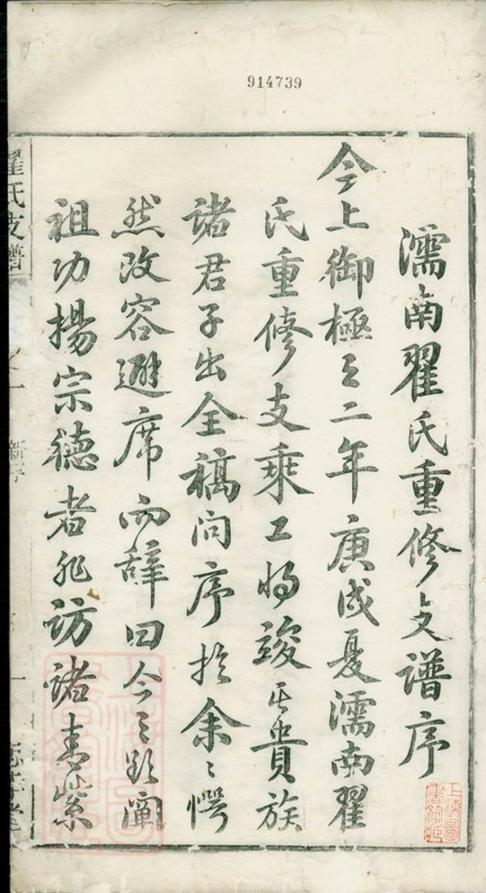 914739
濡南翟氏重修支譜序
今上御極之二年庚戌夏濡南翟
氏重修支乘工将竣其貴族
諸君子出全稿问序扵余〻愕
然改容避席而辞曰今之欲阐
祖功揚宗德者非访诸青紫
翟氏支譜
新序